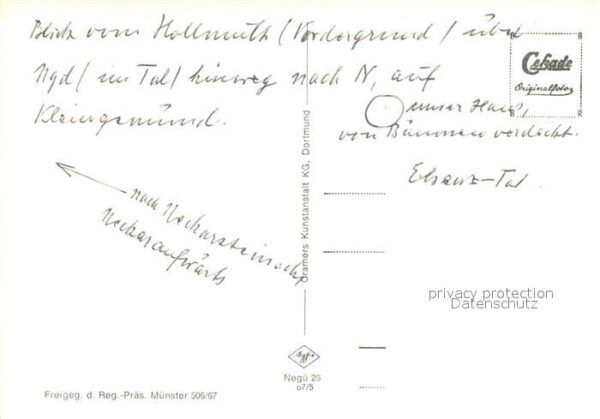 Blick vom Hollmuth (Vordergrund) über
Ngd (im Tal) hinweg nach N, auf
Kleingemünd.
unser Haus,
von Bäumen verdeckt.
Elsenz-Tal
nach Neckarsteinach,
Neckaraufwärts
Cekade
Originalfoto
Cramers Kunstanstalt KG, Dortmund
privacy protection
Datenschutz
Agfa
Negü 26
67/5
Freigeg. d. Reg.-Präs. Münster 506/67